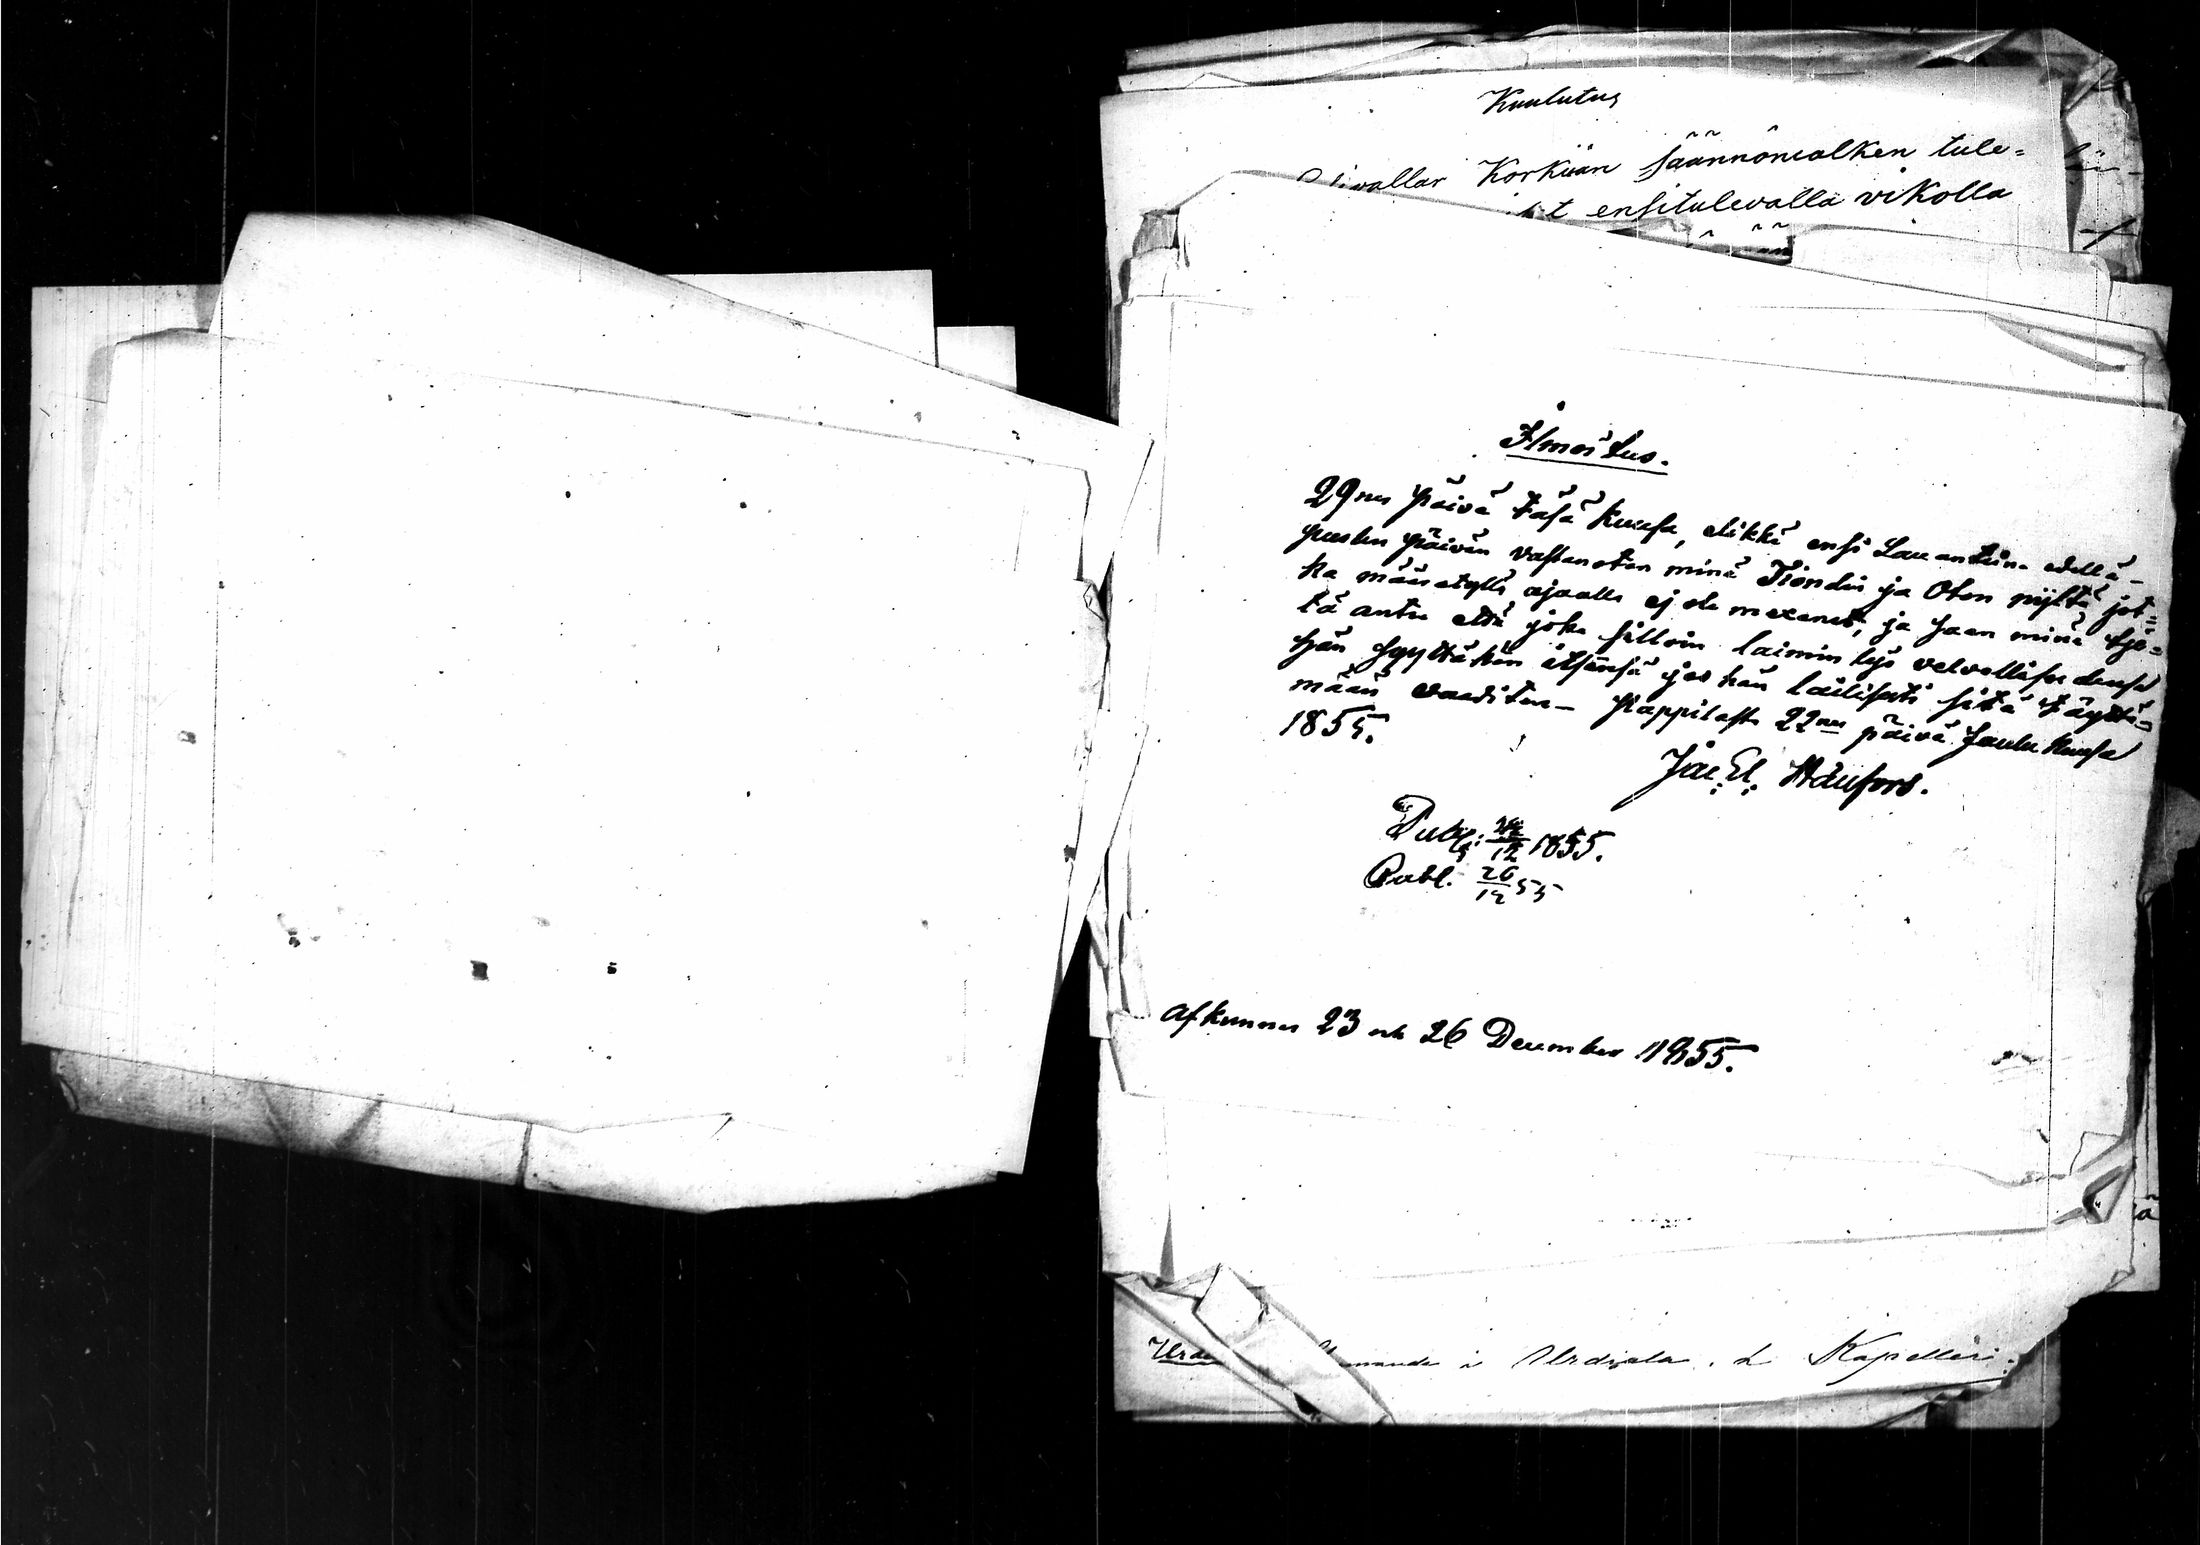 Kuulutus
Korkiian säännönialken tule=
ensitulevalla vikolla
Ilmoitus.
29nes päivä täsä kuusa, elikkä ensi Lauantaina edellä-
puolen päivän vastanotan minä Tiondin ja Oton niiltä jot=
ka määrätyllä ajaalla ej ole maxanet, ja saan minä tyä=
tä antaa että joka silloin laimin lyö velvollisudensa
syyttäkän itsensä jos hän laillisesti sitä täyttä=
mään vaaditan - Pappilasta 22nen päivä Joulu kuusa
1855.
Jac: El: Hänfors.
Publ: 12 1855.
Publ. 26/12 55
Afkunnas 23 och 26 December 1855.
i Urdiala. Kapelleri.